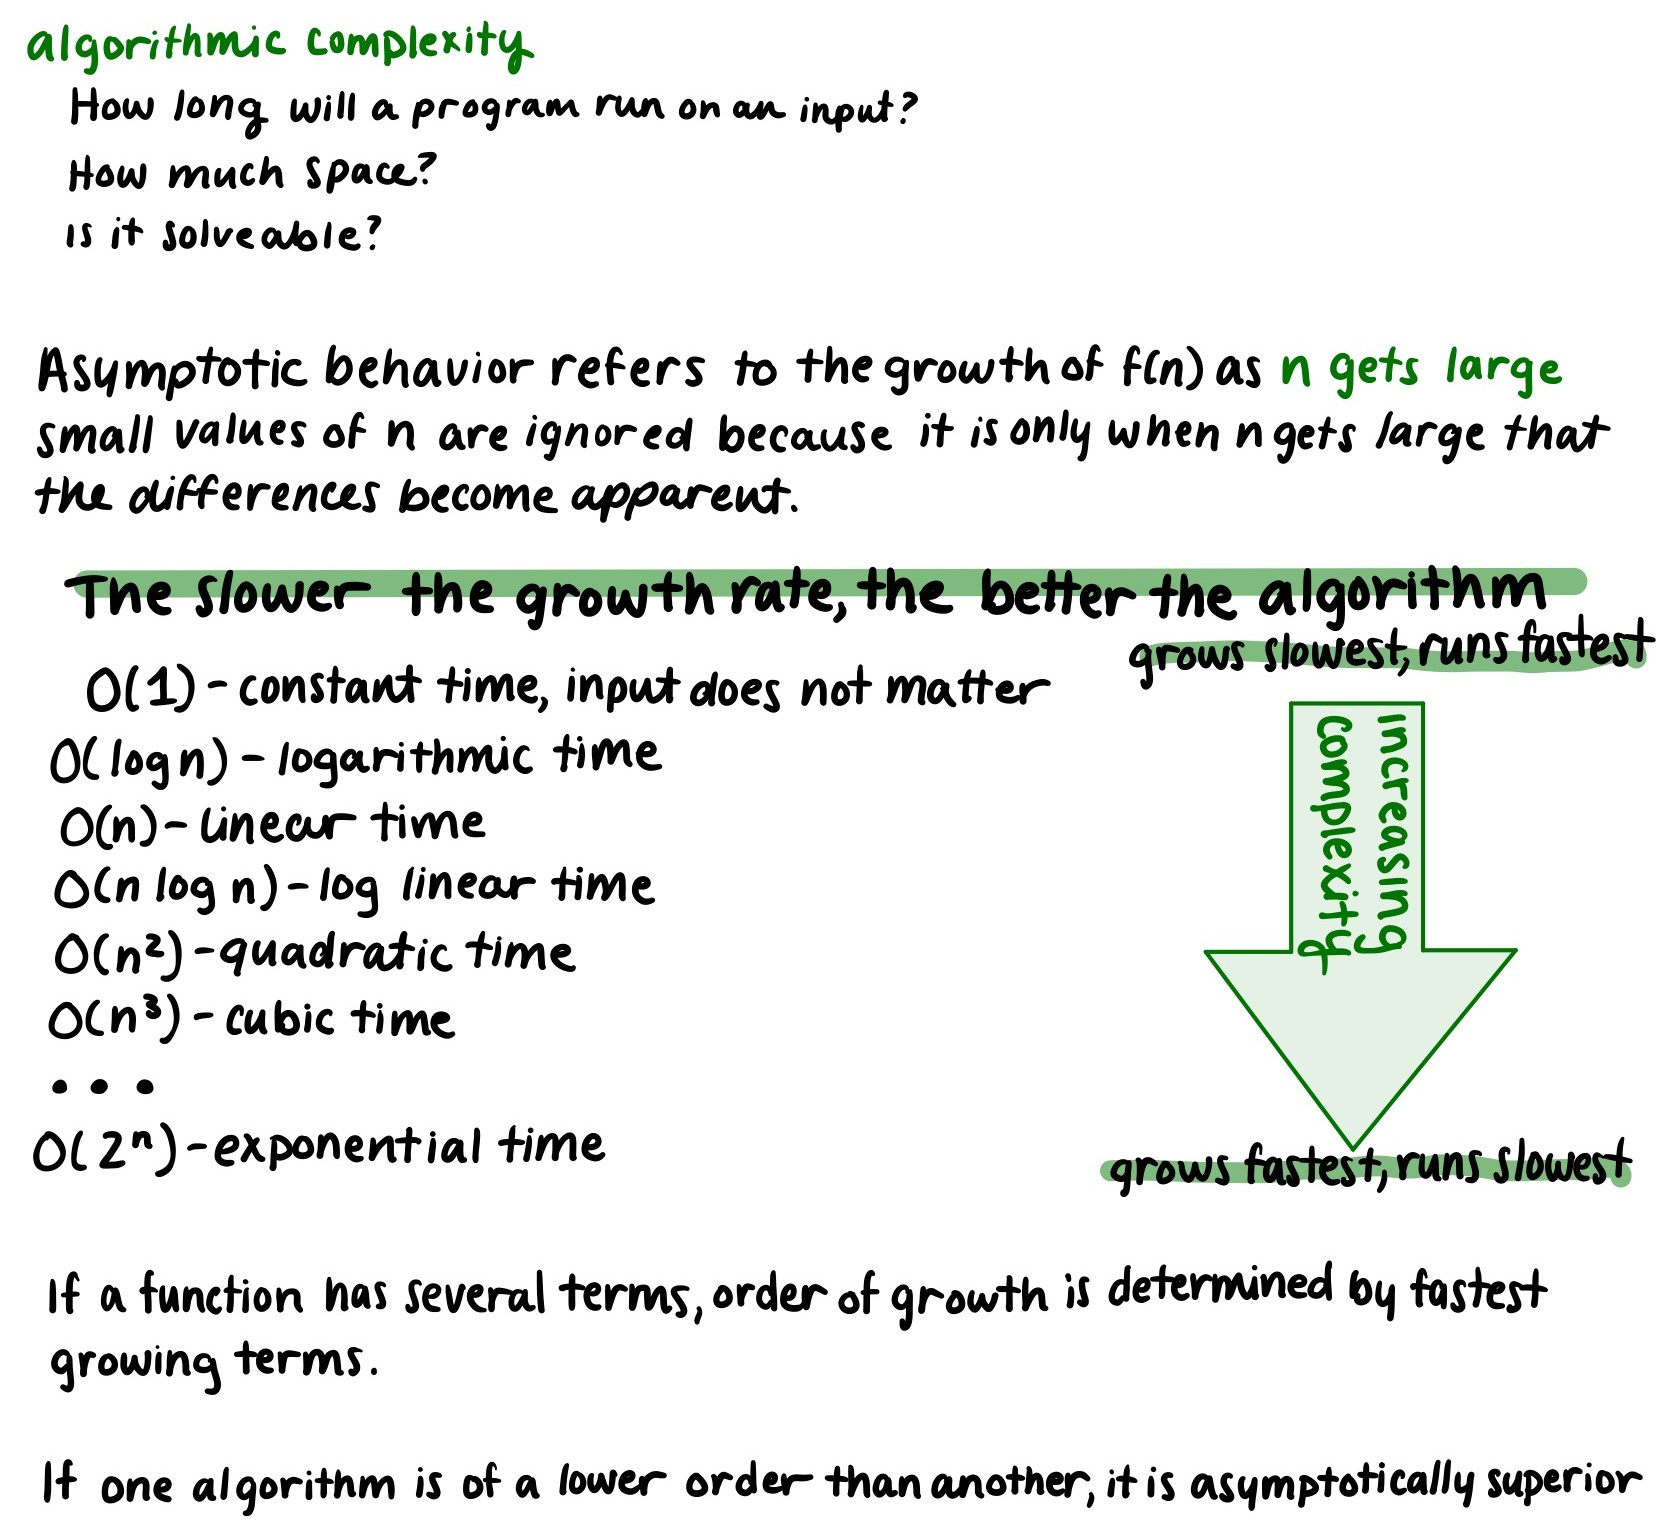 algorithmic complexity
How long will a program run on an input?
How much space?
Is it solveable?
Asymptotic behavior refers to the growth of f(n) as n gets large
small values of n are ignored because it is only when n gets large that
the differences become apparent.
The slower the growth rate, the better the algorithm
grows slowest, runs fastest
O(1) - constant time, input does not matter
O(log n) - logarithmic time
O(n) - linear time
O(n log n) - log linear time
O(n²) - quadratic time
O(n³) - cubic time
...
O(2ⁿ) - exponential time
increasing
complexity
grows fastest, runs slowest
If a function has several terms, order of growth is determined by fastest
growing terms.
If one algorithm is of a lower order than another, it is asymptotically superior